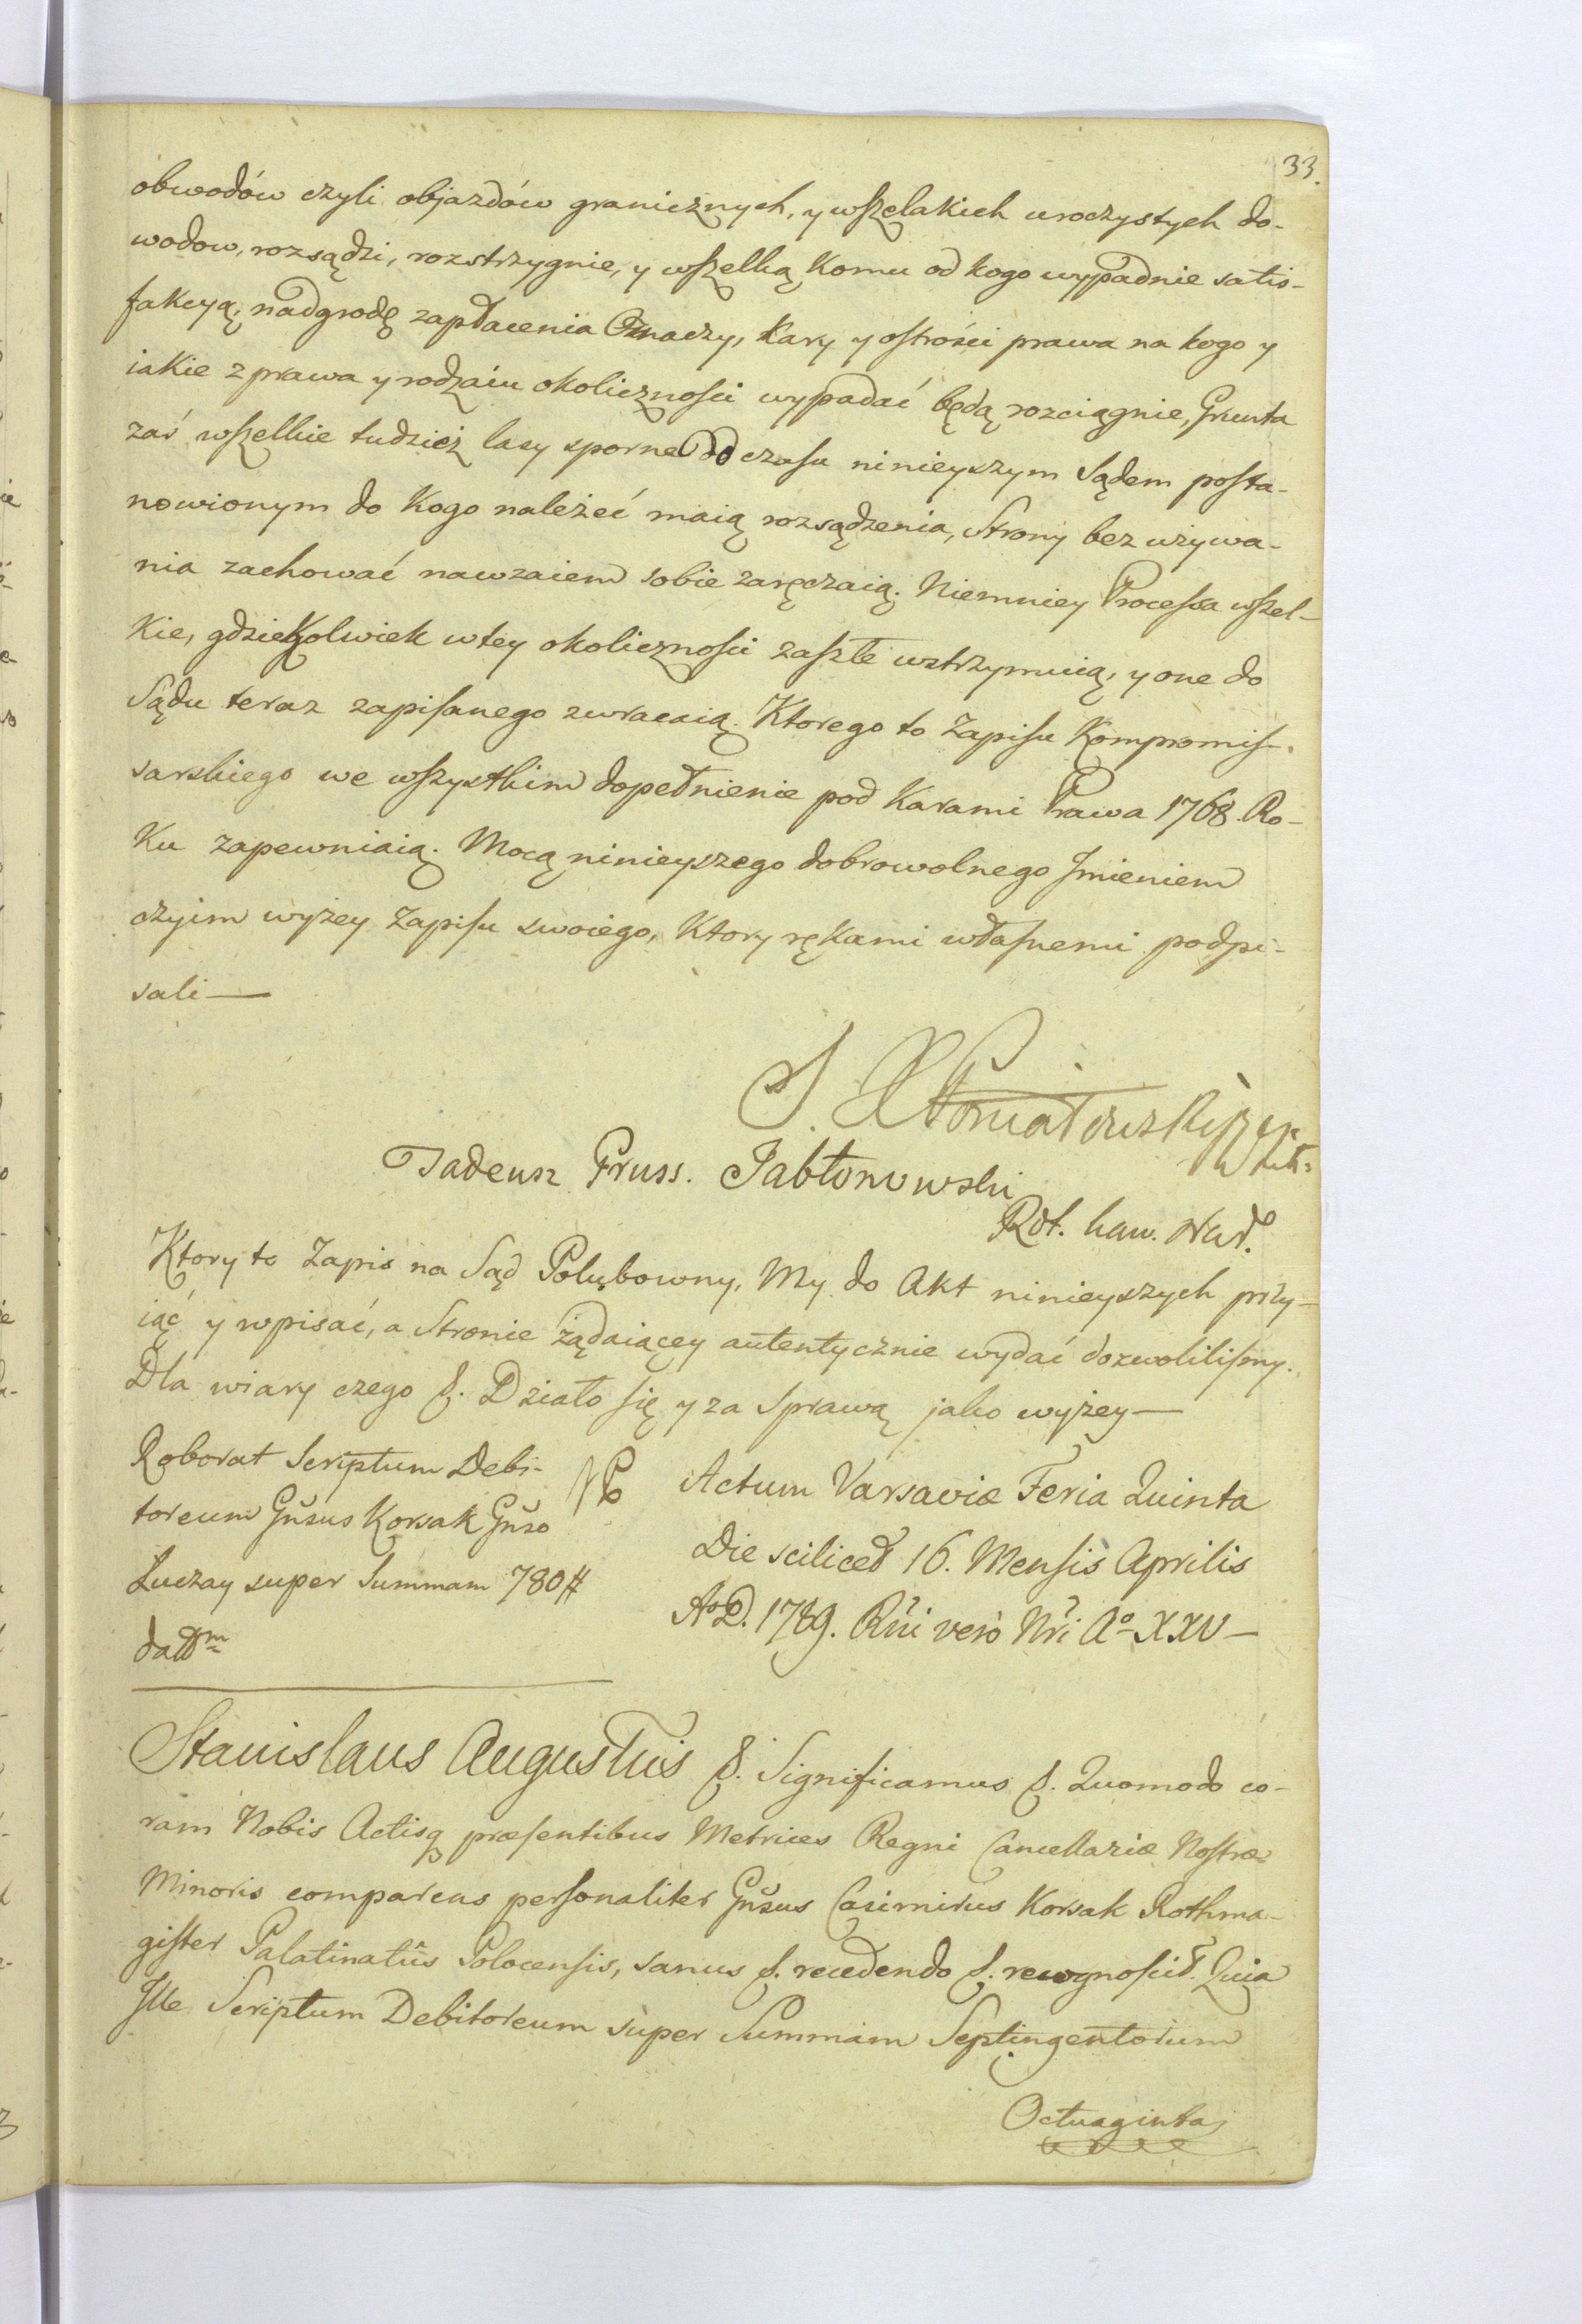 33.
obwodów czyli objazdów granicznych, y wszelakich uroczystych do-
wodow, rozsądzi, rozstrzygnie, y wszelką komu od kogo wypadnie satis-
fakcyą, nadgrodę zapłacenia Oznaczy, kary y ostrości prawa na kogo y
iakie z prawa y rodzaiu okoliczności wypadać będą rozciągnie, Grunta
zaś wszelkie tudzież lasy sporne do czasu ninieyszym Sądem posta-
nowionym do kogo należeć maią rozsądzenia, Strony bez używa-
nia zachować nawzaiem sobie zaręczaią. Niemniey Processa wszel-
kie, gdziekolwiek w tey okoliczności zaszłe wstrzymuią, y one do
Sądu teraz zapisanego zwracaią. Ktorego to Zapisu Kompromis-
sarskiego we wszystkim dopełnienie pod karami Prawa 1768. Ro-
ku zapewniaią. Mocą ninieyszego dobrowolnego Imieniem
czyim wyżey Zapisu swoiego, ktory rękami własnemi podpi-
sali —
Poniatowski
Tadeusz Pruss. Jabłonowski
Rot. kaw. Nar.
Ktory to Zapis na Sąd Polubowny, My do Akt ninieyszych przy-
iąć y wpisać, a Stronie żądaiącey autentycznie wydać dozwolilismy.
Dla wiary czego &. Działo się y za sprawą jako wyżey —
Roborat Scriptum Debi-
toreum Gnšus Korsak Gnšo
Łuczay super Summam 780 #
dattm
Actum Varsaviæ Feria Quinta
Die scilicet 16. Mensis Aprilis
AoD. 1789. Rñi vero Nri Ao XXV —
Stanislaus Augustus &. Significamus &. Quomodo co-
ram Nobis Actisq præsentibus Metrices Regni Cancellariæ Nostræ
Minoris comparens personaliter Gnšus Casimirus Korsak Rothma-
gister Palatinatûs Polocensis, sanus &. recedendo &. recognoscit. Quia
Ille Scriptum Debitoreum super Summam Septingentorum
Octuaginta